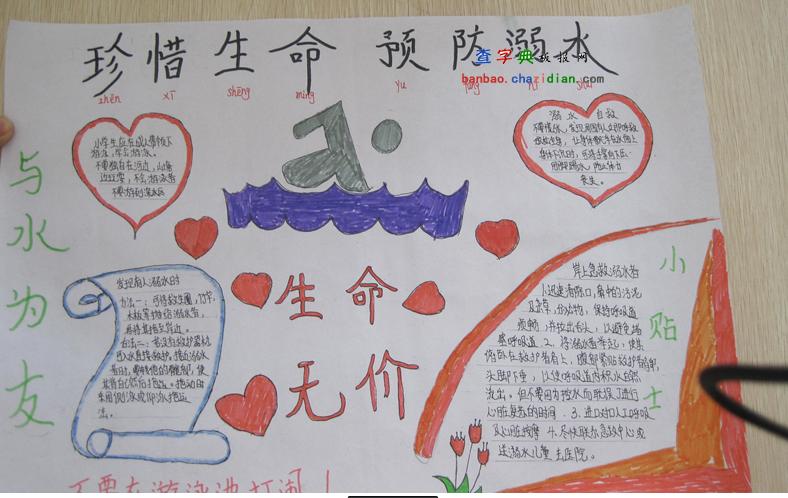 珍惜生命 预防溺水
zhēn xī shēng mìng yù fáng nì shuǐ
查字典板报网
banbao.chazidian.com
小学生应在成人带领下
游泳,学会游泳。
不要独自在河边、山塘
边玩耍,不会游泳者
不要游到深水区
溺水自救
不要慌张,发现周围有人立即呼救
放松全身,让身体飘浮在水面上
丧失。
与水为友
生命
无价
发现有人溺水时
方法一:可将救生圈、竹竿、
木板等物抛给溺水者,
再将其拖至岸边。
方法二:若没有救护器材
可入水直接救护。接近溺水
法。
小贴士
岸上急救溺水者
1.迅速清除口、鼻中的污泥
杂草、分泌物,保持呼吸道
通畅,并拉出舌头,以避免堵
塞呼吸道。2、将溺水者举起,使其
俯卧在救护者肩上,腹部紧贴救护者肩部,
头脚下垂,以使呼吸道内积水自然
流出。但不要因为控水而耽误了进行
心脏复苏的时间。3、进口对口人工呼吸
及心脏按摩 4、尽快联系急救中心或
送溺水儿童去医院。
不要在游泳池打闹!